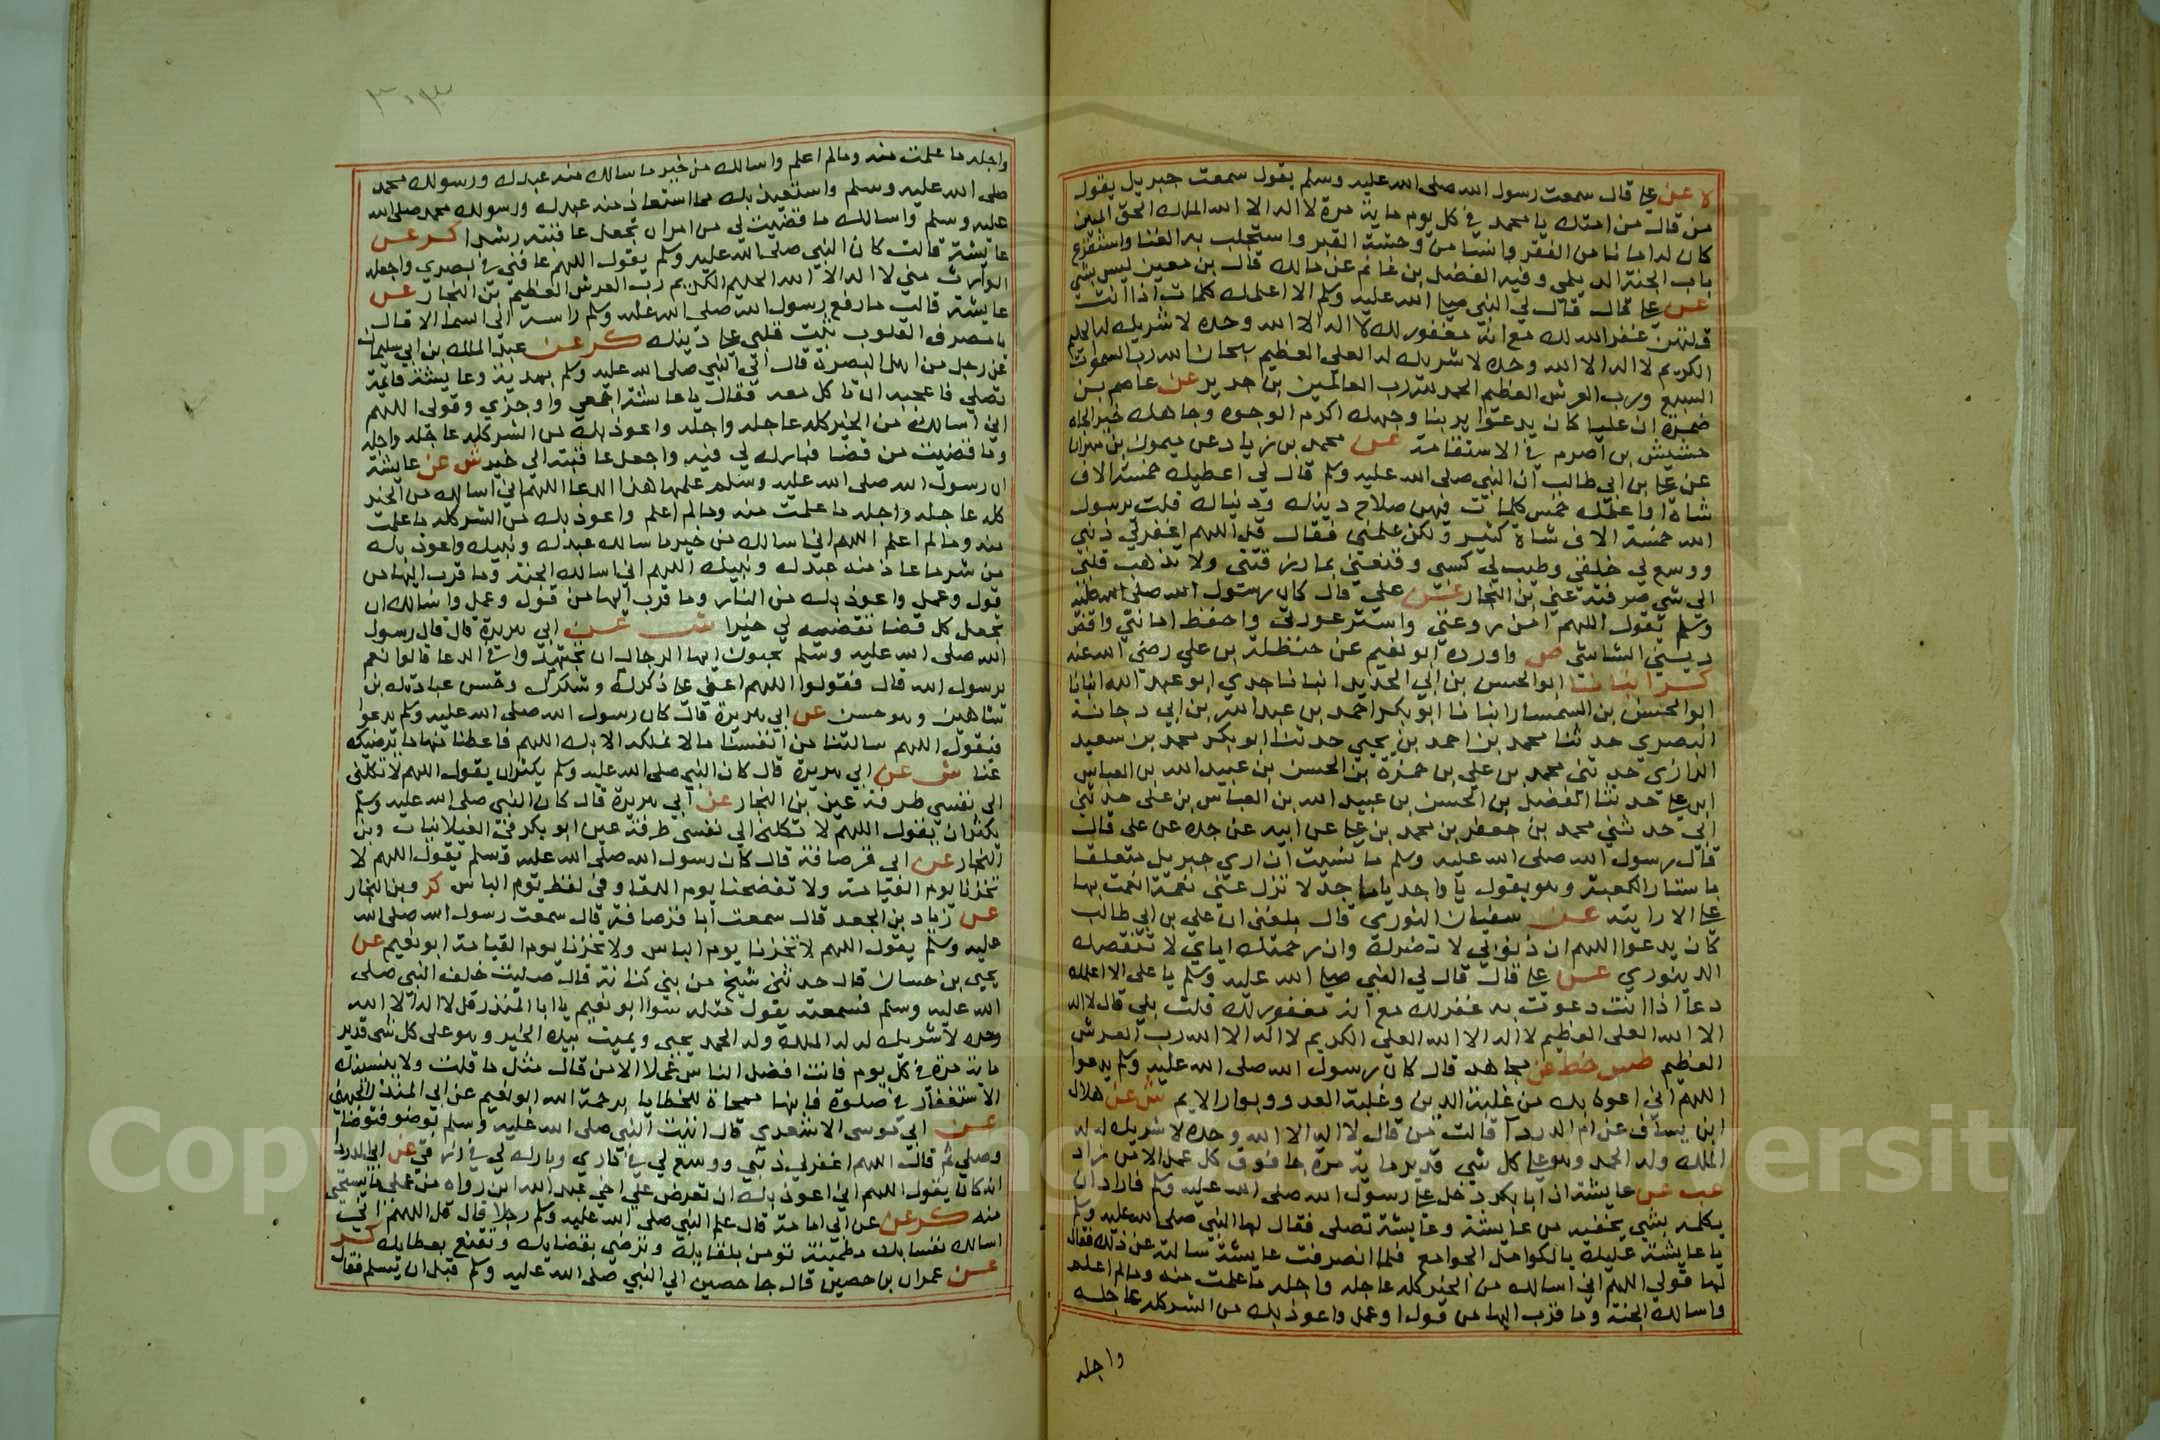 لا عن علي قال سمعت رسول الله صلى الله عليه وسلم يقول سمعت جبريل يقول
من قال من امتك يا محمد في كل يوم ماية مرة لا اله الا الله الملك الحق المبين
كان له امانا من الفقر وانسا من وحشة القبر واستجلب به الغنا واستقرع
باب الجنة الديلمي وفيه الفضل بن غانم عن مالك قال بن معين ليس بشي
عن علي قال قال لي النبي صلى الله عليه وسلم الا اعلمك كلمات اذا انت
قلتهن غفر الله لك مع انه مغفور لك لا اله الا الله وحده لا شريك له الحليم
الكريم لا اله الا الله وحده لا شريك له العلي العظيم سبحان الله رب السموات
السبع ورب العرش العظيم الحمد لله رب العالمين بن جرير عن عاصم بن
ضمرة ان عليا كان يدعوا يربنا وجهك اكرم الوجوه وجاهك خير الجاه
خشيش بن اصرم في الاستقامة عن محمد بن زياد عن ميمون بن مهران
عن علي بن ابي طالب ان النبي صلى الله عليه وسلم قال لي اعطيك خمسة الاف
شاة او اعلمك خمس كلمات فيهن صلاح دينك ودنياك قلت يرسول
الله خمسة الاف شاة كثير ولكن علمني فقال قل اللهم اغفر لي ذنبي
ووسع لي خلقي وطيب لي كسبي وقنعني بما رزقتني ولا تذهب قلبي
الي شي صرفته عني بن النجار عن علي قال كان رسول الله صلى الله عليه
وسلم يقول اللهم امن روعتي واستر عورتي واحفظ امانتي واقض
ديني الشاشي ص واورده ابو نعيم عن حنظلة بن علي رضي الله عنه
كر انبانا ابو الحسن بن ابي الحديد انبانا جدي ابو عبد الله انبانا
ابو الحسن بن السمسار انبانا ابو بكر احمد بن عبد الله بن ابي دجانة
البصري حدثنا محمد بن احمد بن يحيى حدثنا ابو بكر محمد بن سعيد
الرازي حدثني محمد بن علي بن حمزة بن الحسن بن عبيد الله بن العباس
ابن علي حدثنا الفضل بن الحسن بن عبيد الله بن العباس بن علي حدثني
ابي حدثني محمد بن جعفر بن محمد بن علي عن ابيه عن جده عن علي قال
قال رسول الله صلى الله عليه وسلم ما شيت ان اري جبريل متعلقا
باستار الكعبة وهو يقول يا واحد يا ماجد لا تزل عني نعمة انعمت بها
علي الا رايته عن سفيان الثوري قال بلغني ان علي بن ابي طالب
كان يدعوا اللهم ان ذنوبي لا تضرك وان رحمتك اياي لا تنقصك
الدينوري عن علي قال قال لي النبي صلى الله عليه وسلم يا علي الا اعلمك
دعا اذا انت دعوت به غفر لك مع انه مغفور لك قلت بلي قال لا اله
الا الله العلي العظيم لا اله الا الله العلي الكريم لا اله الا الله رب العرش
العظيم طس خط عن مجاهد قال كان رسول الله صلى الله عليه وسلم يدعوا
اللهم اني اعوذ بك من غلبة الدين وغلبة العدو وبوار الايم ش عن هلال
ابن يساف عن ام الدردا قالت من قال لا اله الا الله وحده لا شريك له له
الملك وله الحمد وهو علي كل شي قدير ماية مرة جا فوق كل عمل الا من زاد
عب عن عايشة ان ابا بكر دخل علي رسول الله صلى الله عليه وسلم فاراد ان
يكلمه بشي يخفيه من عايشة وعايشة تصلي فقال لها النبي صلى الله عليه وسلم
يا عايشة عليك بالكوامل الجوامع فلما انصرفت عايشة سالته عن ذلك فقال
لها قولي اللهم اني اسالك من الخير كله عاجله واجله ما علمت منه وما لم اعلم
واسالك الجنة وما قرب اليها من قول او عمل واعوذ بك من الشر كله عاجله
واجله
واجله ما علمت منه وما لم اعلم واسالك من خير ما سالك منه عبدك ورسولك محمد
صلى الله عليه وسلم واستعيذ بك مما استعاذ منه عبدك ورسولك محمد صلى الله
عليه وسلم واسالك ما قضيت لي من امر ان تجعل عاقبته رشدا كر عن
عايشة قالت كان النبي صلى الله عليه وسلم يقول اللهم عافني في بصري واجعله
الوارث مني لا اله الا الله الحليم الكريم رب العرش العظيم بن النجار عن
عايشة قالت ما رفع رسول الله صلى الله عليه وسلم راسه الى السما الا قال
يا مصرف القلوب ثبت قلبي علي دينك كر عن عبد الملك بن ابي سليمان
عن رجل من اهل البصرة قال اتى النبي صلى الله عليه وسلم بهدية وعايشة قايمة
تصلي فاعجبه ان تاكل معه فقال يا عايشة اجمعي واوجزي وقولي اللهم
اني اسالك من الخير كله عاجله واجله واعوذ بك من الشر كله عاجله واجله
وما قضيت من قضا فبارك لي فيه واجعل عاقبته الي خير ش عن عايشة
ان رسول الله صلى الله عليه وسلم علمها هذا الدعا اللهم اني اسالك من الخير
كله عاجله واجله ما علمت منه وما لم اعلم واعوذ بك من الشر كله ما علمت
منه وما لم اعلم اللهم اني اسالك من خير ما سالك عبدك ونبيك واعوذ بك
من شر ما عاذ منه عبدك ونبيك اللهم اني اسالك الجنة وما قرب اليها من
قول وعمل واعوذ بك من النار وما قرب اليها من قول وعمل واسالك ان
تجعل كل قضا تقضيه لي خيرا ش عن ابي هريرة قال قال رسول
الله صلى الله عليه وسلم تحبون ايها الرجال ان تجتهدوا في الدعا قالوا نعم
يرسول الله قال فقولوا اللهم اعني علي ذكرك وشكرك وحسن عبادتك بن
شاهين وهو حسن عن ابي هريرة قال كان رسول الله صلى الله عليه وسلم يدعوا
فيقول اللهم سالتنا من انفسنا ما لا نملكه الا بك اللهم فاعطنا منها ما يرضيك
عنا ش عن ابي هريرة قال كان النبي صلى الله عليه وسلم يكثر ان يقول اللهم لا تكلني
الى نفسي طرفة عين بن النجار عن ابي هريرة قال كان النبي صلى الله عليه وسلم
يكثر ان يقول اللهم لا تكلني الي نفسي طرفة عين ابو بكر في الغيلانيات وبن
النجار عن ابي قرصافة قال كان رسول الله صلى الله عليه وسلم يقول اللهم لا
تخزنا يوم القيامة ولا تفضحنا يوم اللقا وفي لفظ يوم الباس كر وبن النجار
عن زياد بن الجعد قال سمعت ابا قرصافة قال سمعت رسول الله صلى الله
عليه وسلم يقول اللهم لا تخزنا يوم الباس ولا تخزنا يوم القيامة ابو نعيم عن
يحيى بن حسان قال حدثني شيخ من بني كنانة قال صليت خلف النبي صلى
الله عليه وسلم فسمعته يقول مثله سوا ابو نعيم يا ابا المنذر قل لا اله الا الله
وحده لا شريك له له الملك وله الحمد يحيي ويميت بيده الخير وهو على كل شي قدير
ماية مرة في كل يوم فانت افضل الناس عملا الا من قال مثل ما قلت ولا ينسينك
الاستغفار في صلوة فانها ممحاة للخطايا برحمة الله ابو نعيم عن ابي المنذر الجهني
عن ابي موسى الاشعري قال اتيت النبي صلى الله عليه وسلم بوضو فتوضا
وصلي ثم قال اللهم اغفر لي ذنبي ووسع لي في داري وبارك لي في رزقي عن ابي الدردا
انه كان يقول اللهم اني اعوذ بك ان تعرض علي اخي عبد الله ابن رواحه من عملي ما يستحي
منه كر عن عن ابي امامة قال علم النبي صلى الله عليه وسلم رجلا قال قل اللهم اني
اسالك نفسا بك مطمينة تومن بلقايك وترضي بقضايك وتقنع بعطايك كر
عن عمران بن حصين قال جا حصين الي النبي صلى الله عليه وسلم قبل ان يسلم فقال
Copy ng ersity